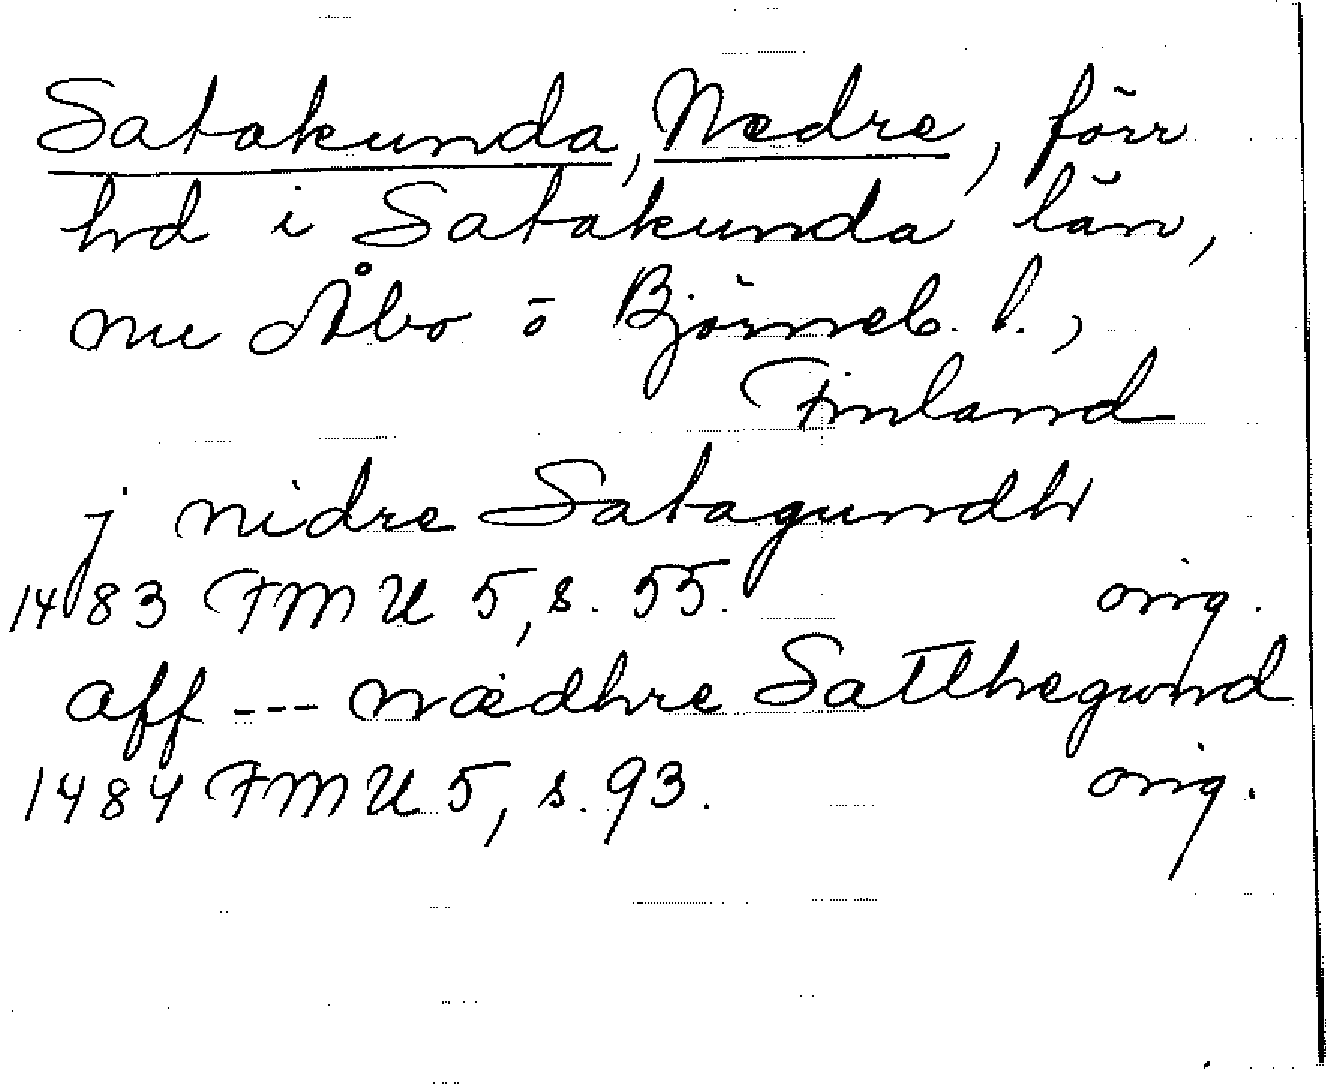 Satakunda, Nedre, förr
hd i Satakunda län,
nu Åbo o Björneb. l.,
Finland
j nidre Satagundh
1483 FMU 5, s. 55. orig.
aff --- nædhre Satthegund
1484 FMU 5, s. 93. orig.